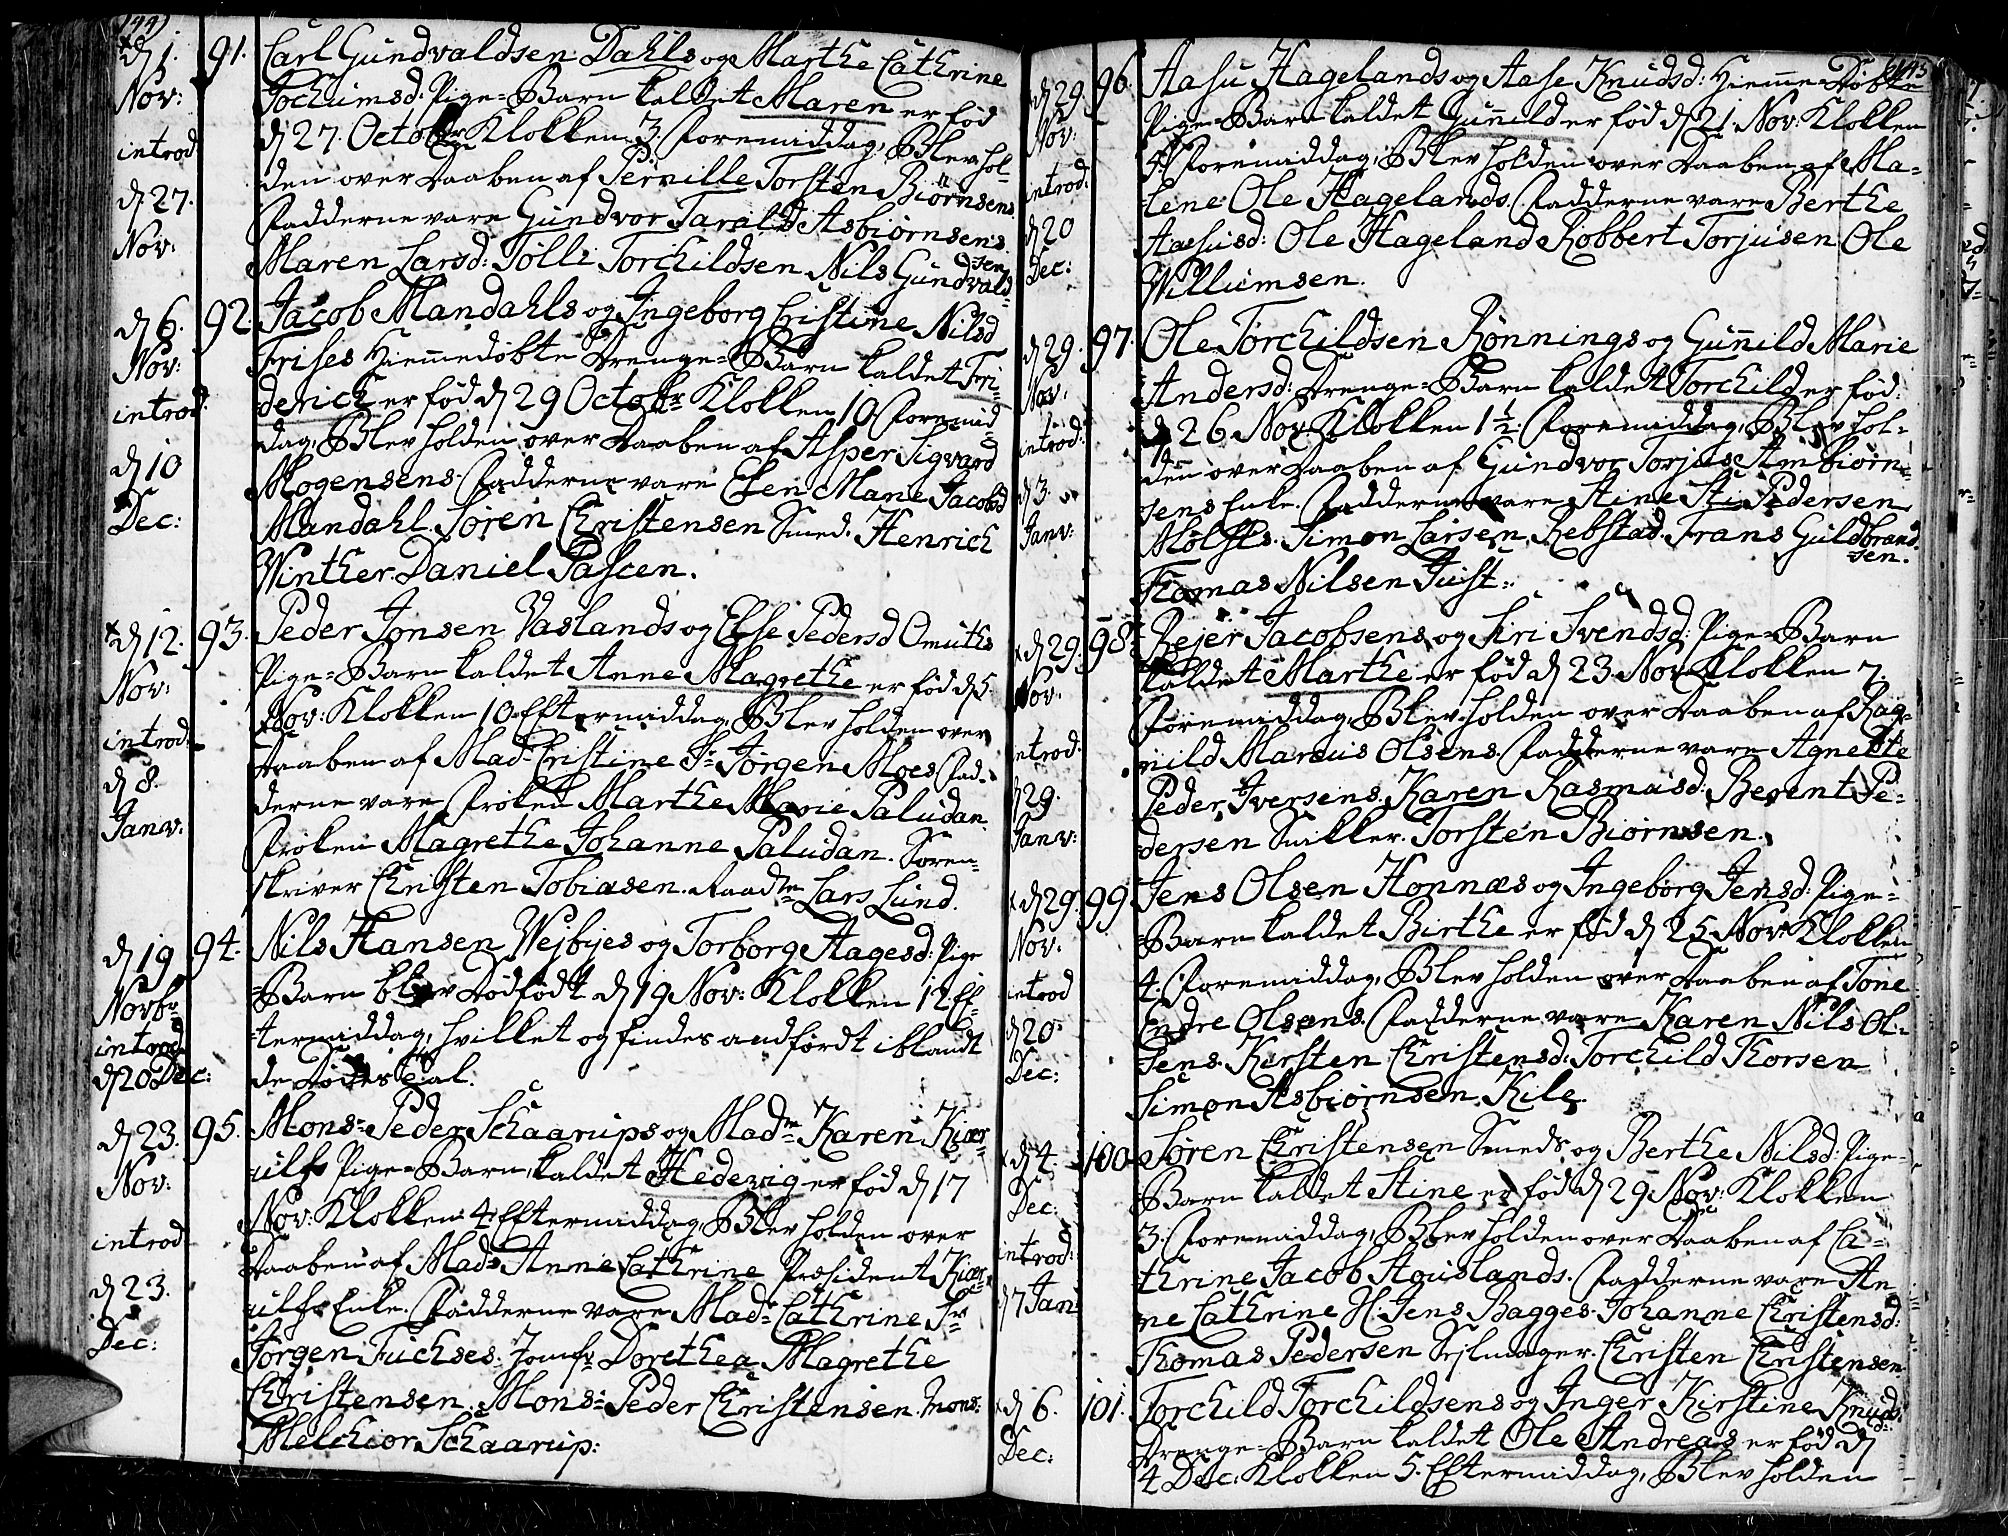 144)
d 1. Nov: introd d 27. Nov:
91. Carl Gundvaldsen Dahls og Marthe Cathrine
Jochumsd: Pige-Barn kaldet Maren er fød
d 27. Octobr Klokken 3. Foremiddag, Blev hol-
den over Daaben af Pernille Torsten Biörnsens
Fadderne vare Gundvor Tarald Asbiörnsens
Maren Larsd: Tölli Torchildsen Nils Gundvald-
sen
d 6. Nov: introd: d 10 Dec:
92. Jacob Mandahls og Ingeborg Cristine Nilsd
Frises Hiemmedöbte Drenge-Barn kaldet Fri-
derich er fød d 29 Octobr Klokken 10 Foremid
dag, Blev holden over Daaben af Asper Sigvard
Mogensens. Fadderne vare Elen Marie Jacobsd
Mandahl. Sören Christensen Smed. Henrich
Winther. Daniel Pascen.
d 12. Nov: introd: d 8. Janv:
93. Peder Jonsen Vaslands og Else Pedersd Omuths
Pige-Barn kaldet Anne Magrethe er fød d 5
Nov: Klokken 10 Eftermiddag, Blev holden over
Daaben af Mad. Cristine Sr Jörgen Moes. Fad-
derne vare Fröken Marthe Marie Paludan.
Fröken Magrethe Johanne Paludan. Soren-
skriver Christen Tobiasen. Raadm Lars Lund.
d 19 Novbr introd d 20 Dec:
94. Nils Hansen Wejbyes og Torborg Aagesd: Pige
-Barn blev Dödfödt d 19 Nov: Klokken 12 Ef-
termiddag, hvilket og findes andfördt iblandt
de Dödes Tal.
d 23. Nov: introd d 23. Dec:
95. Mons: Peder Schaarups og Madm Karen Kier-
ulfs Pige-Barn kaldet Hedevig er fød d 17
Nov: Klokken 4 Eftermiddag, Blev holden over
Daaben af Mad: Anne Cathrine Præsident Kier-
ulfs Enke. Fadderne vare Mad: Cathrine Sr
Jörgen Fuchses. Jomfr Dorethea Magrethe
Christensen. Mons: Peder Christensen. Mons:
Melchior Schaarup:
(145
d 29 Nov: introd: d 20 Dec:
96. Aasu Hagelands og Aase Knudsd: Hieme-Döbte
Pige-Barn kaldet Gunild er fød d 21. Nov: Klokken
4 Foremiddag, Blev holden over Daaben af Ma-
lene Ole Hagelands. Fadderne vare Berthe
Aasusd: Ole Hageland Robbert Torjusen Ole
Williumsen.
d 29. Nov: introd: d 3. Janv:
97. Ole Torchildsen Rönnings og Gunild Marie
Andersd: Drenge-Barn kaldet Torchild er fød
d 26 Nov: Klokken 1½ Foremiddag, Blev hol-
den over Daaben af Gundvor Torjus Ambiörn-
sens Enke. Fadderne vare Stine Sti Pedersen
Simon Larsen Rebstad. Frans Guldbrand-
sen.
Thomas Nilsen Just:
d 29. Nov: introd d 29. Janv:
98. Rejer Jacobsens og Siri Svendsd: Pige-Barn
kaldet Marthe er fød d 23. Nov Klokken 7.
Foremiddag, Blev holden over Daaben af Rag-
nild Marcus Olsens. Fadderne vare Agnette
Peder Iversens. Karen Rasmusd: Berent Pe-
dersen Snikker. Torsten Biörnsen.
d 29. Nov. introd d 20. Dec:
99. Jens Olsen Honnæs og Ingeborg Jensd: Pige-
Barn kaldet Birthe er fød d 25 Nov: Klokken
4. Foremiddag, Blev holden over Daaben af Tone
Endre Olsens. Fadderne vare Karen Nils Ol-
sens. Kirsten Christensd: Torchild Thorsen
Simon Asbiörnsen Kile.
d 4. Dec: introd: d 7 Jan
100. Sören Christensen Smeds og Berthe Nilsd: Pige-
Barn kaldet Stine er fød d 29 Nov: Klokken
3. Foremiddag, Blev holden over Daaben af Ca-
thrine Jacob Aguslands. Fadderne vare An
ne Cathrine H: Jens Bagges. Johanne Christensd:
Thomas Pedersen Sejlmager. Christen Christensen
d 6. Dec:
101. Torchild Torchildsens og Inger Kirstine Knuds
d:
Drenge-Barn kaldet Ole Andreas er fød d
4 Dec: Klokken 5. Eftermiddag, Blev holden